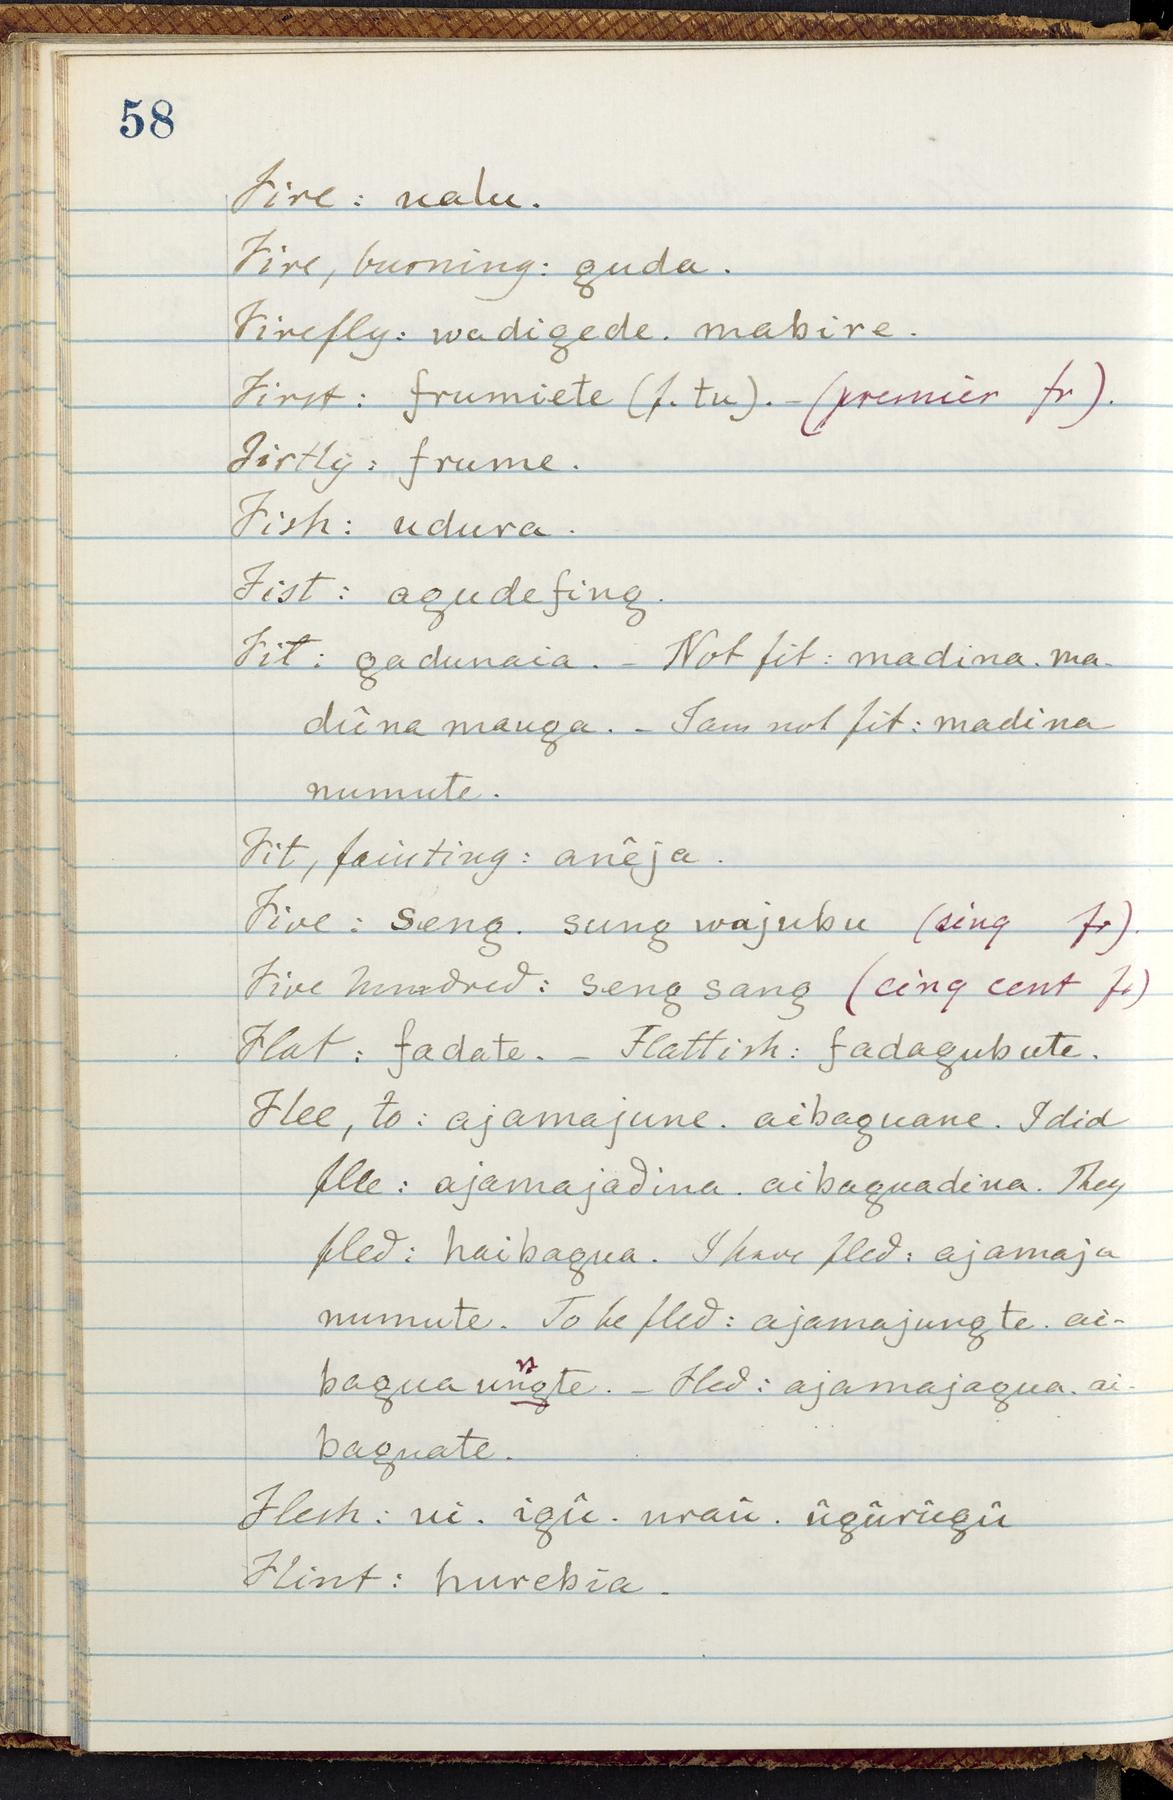 58
Fire: ualu.
Fire, burning: guda.
Firefly: wadigede. mabire.
First: frumiete (f. tu). – (premier fr).
Firtly: frume.
Fish: udura.
Fist: agudefing.
Fit: gadunaia. – Not fit: madina. ma-
dûna mauga. – I am not fit: madina
numute.
Fit, fainting: anêja.
Five: seng. sung wajubu (sinq fr).
Five hundred: seng sang (cinq cent fr)
Flat: fadate. – Flattish: fadagubute.
Flee, to: ajamajune. aibaguane. I did
flee: ajamajadina. aibaguadina. They
fled: haibagua. I have fled: ajamaja
numute. To be fled: ajamajungte. ai-
bagua ungte. – Fled: ajamajagua. ai-
baguate.
Flesh: ui. igû. uraû. ûgûrûgû
Flint: hurebia.